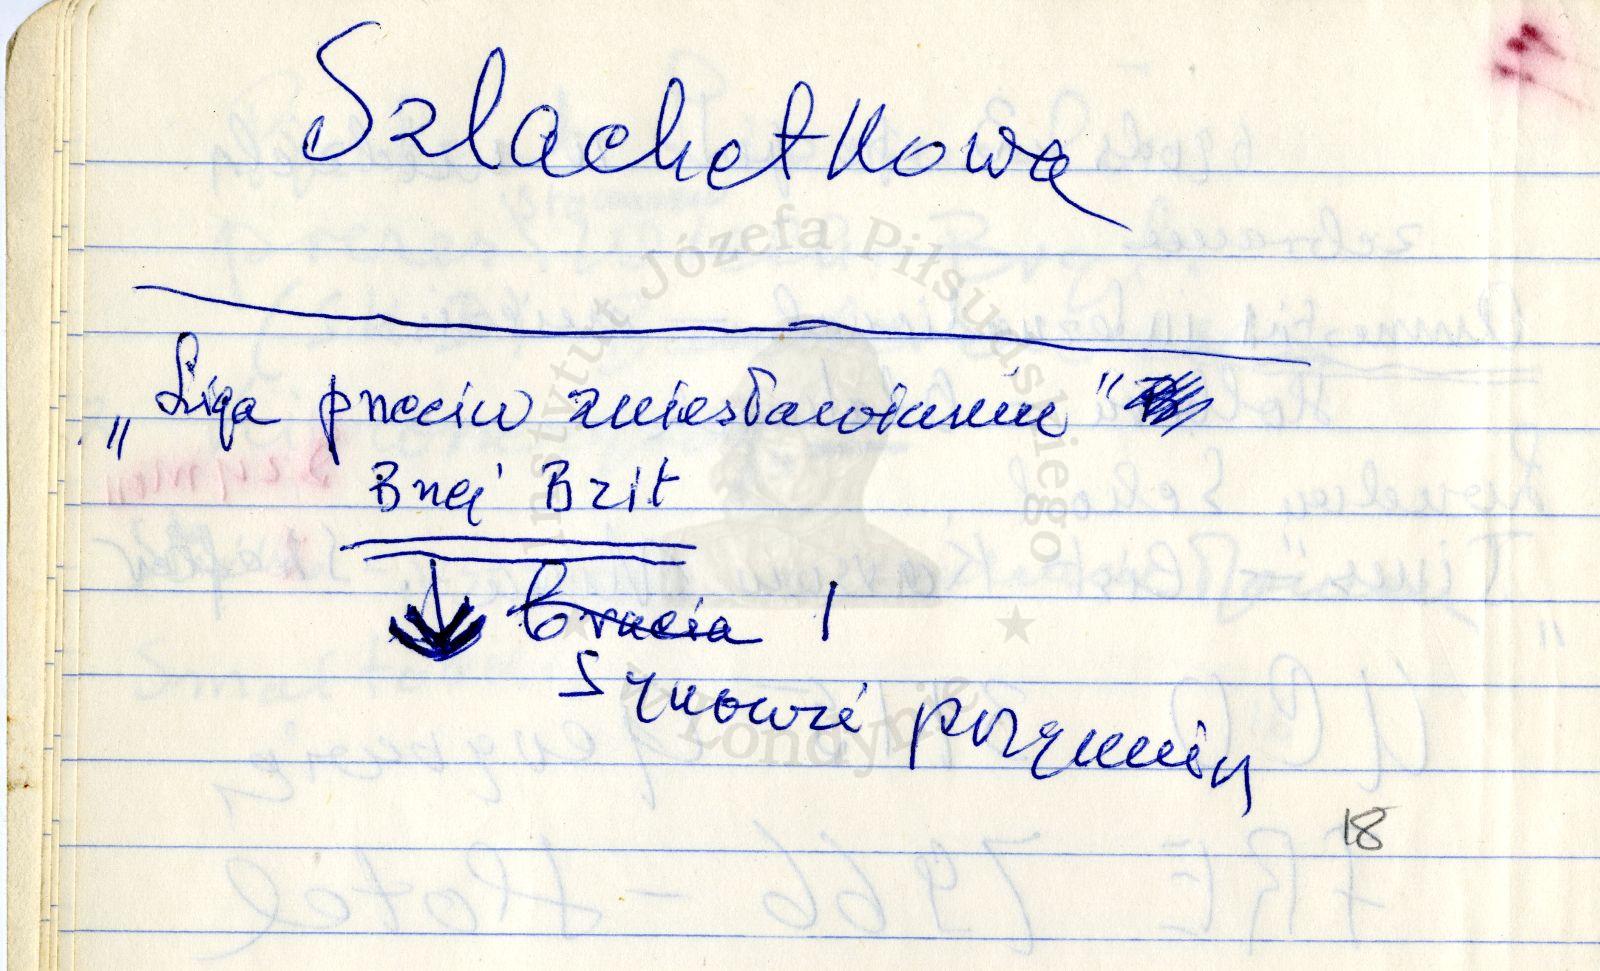 Szlachetkowa
„Liga przeciw zniesławieniu"
Bnej Brit
bracia !
Synowie przymierza
18
Instytut Józefa Piłsudskiego
w Londynie